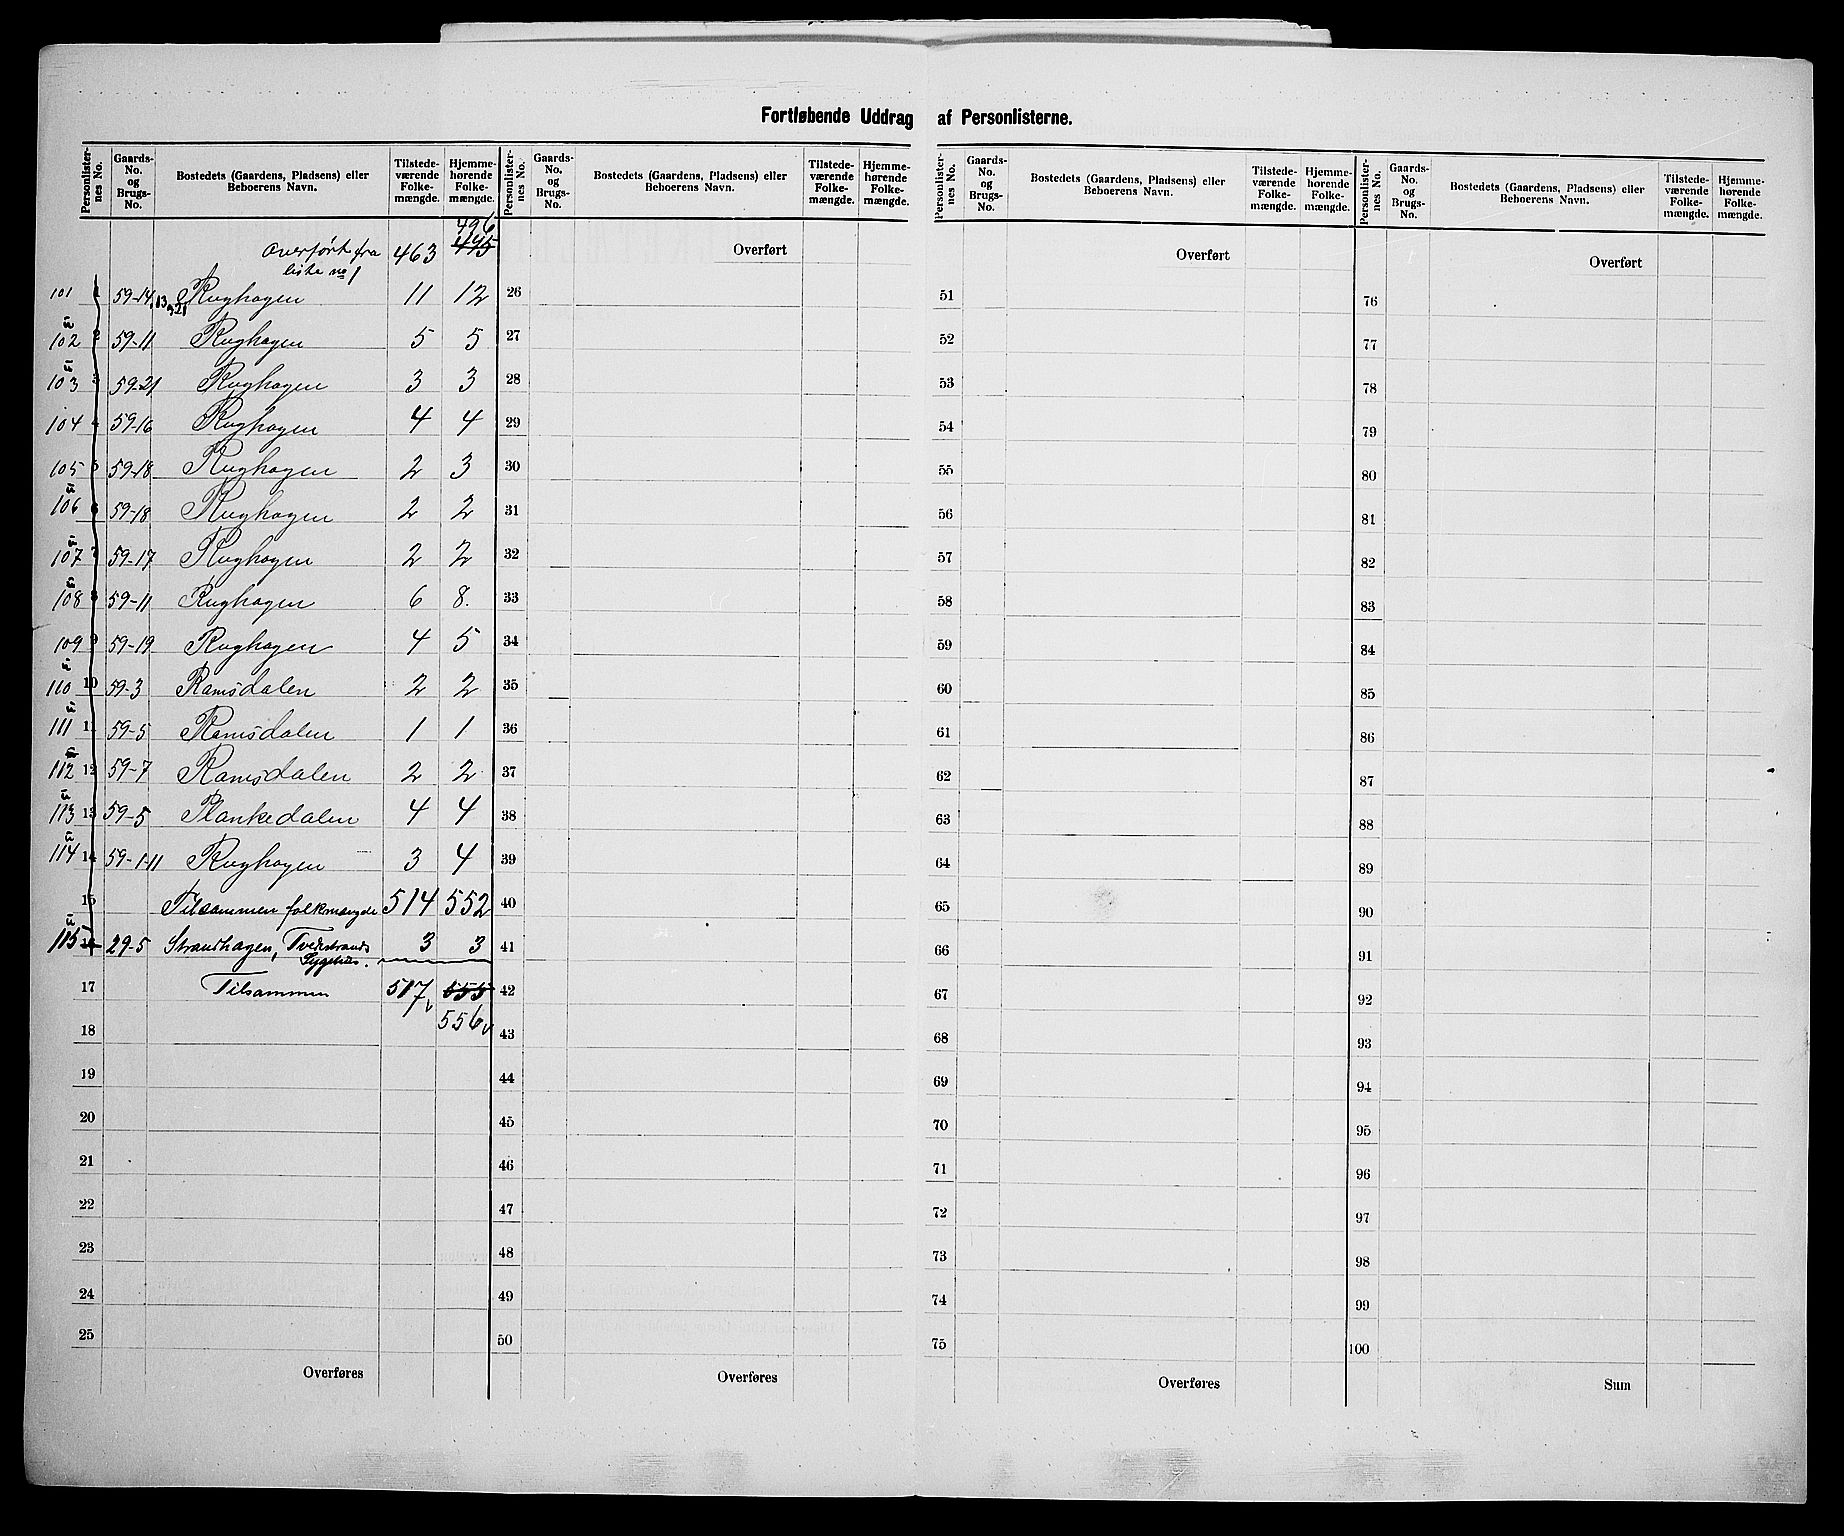 Fortløbende Uddrag af Personlisterne.
Personlister-nes No. | Gaards-No. og Brugs-No. | Bostedets (Gaardens, Pladsens) eller Beboerens Navn. | Tilstede-værende Folke-mængde. | Hjemme-hørende Folke-mængde.
Personlister-nes No. | Gaards-No. og Brugs-No. | Bostedets (Gaardens, Pladsens) eller Beboerens Navn. | Tilstede-værende Folke-mængde. | Hjemme-hørende Folke-mængde.
Personlister-nes No. | Gaards-No. og Brugs-No. | Bostedets (Gaardens, Pladsens) eller Beboerens Navn. | Tilstede-værende Folke-mængde. | Hjemme-hørende Folke-mængde.
Personlister-nes No. | Gaards-No. og Brugs-No. | Bostedets (Gaardens, Pladsens) eller Beboerens Navn. | Tilstede-værende Folke-mængde. | Hjemme-hørende Folke-mængde.
496
overført fra liste no 1 463 495
101 1 59-14, 13, 21 Rughagen 11 12
102 2 59-11 Rughagen 5 5
103 3 59-21 Rughagen 3 3
104 4 59-16 Rughagen 4 4
105 5 59-18 Rughagen 2 3
106 6 59-18 Rughagen 2 2
107 7 59-17 Rughagen 2 2
108 8 59-11 Rughagen 6 8.
109 9 59-19 Rughagen 4 5
110 10 59-3 Ramsdalen 2 2
111 11 59-5 Ramsdalen 1 1
112 12 59-7 Ramsdalen 2 2
113 13 59-5 Plankedalen 4 4
114 14 59-1-11 Rughagen 3 4
15 Tilsammen folkmængde 514 552
115 16 29-5 Strandhagen, Tvedestrands Sygehus. 3 3
17 Tilsammen 517 555
18 556
19
20
21
22
23
24
25
Overføres
Overført
26
27
28
29
30
31
32
33
34
35
36
37
38
39
40
41
42
43
44
45
46
47
48
49
50
Overføres
Overført
51
52
53
54
55
56
57
58
59
60
61
62
63
64
65
66
67
68
69
70
71
72
73
74
75
Overføres
Overført
76
77
78
79
80
81
82
83
84
85
86
87
88
89
90
91
92
93
94
95
96
97
98
99
100
Sum